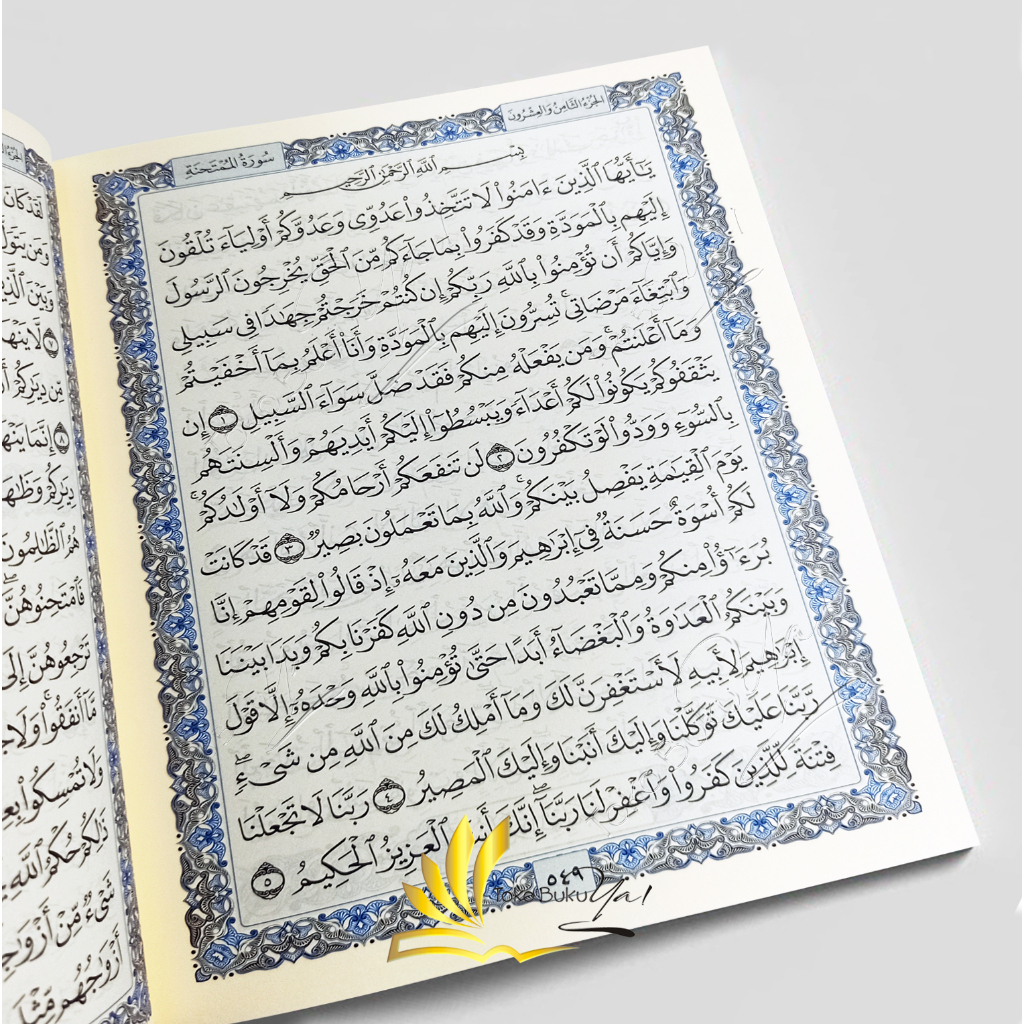 الجزء الثامن والعشرون
سورة الممتحنة
بِسْمِ ٱللَّهِ ٱلرَّحْمَٰنِ ٱلرَّحِيمِ
يَٰٓأَيُّهَا ٱلَّذِينَ ءَامَنُوا۟ لَا تَتَّخِذُوا۟ عَدُوِّى وَعَدُوَّكُمْ أَوْلِيَآءَ تُلْقُونَ
إِلَيْهِم بِٱلْمَوَدَّةِ وَقَدْ كَفَرُوا۟ بِمَا جَآءَكُم مِّنَ ٱلْحَقِّ يُخْرِجُونَ ٱلرَّسُولَ
وَإِيَّاكُمْ أَن تُؤْمِنُوا۟ بِٱللَّهِ رَبِّكُمْ إِن كُنتُمْ خَرَجْتُمْ جِهَٰدًا فِى سَبِيلِى
وَٱبْتِغَآءَ مَرْضَاتِى تُسِرُّونَ إِلَيْهِم بِٱلْمَوَدَّةِ وَأَنَا۠ أَعْلَمُ بِمَآ أَخْفَيْتُمْ
وَمَآ أَعْلَنتُمْ وَمَن يَفْعَلْهُ مِنكُمْ فَقَدْ ضَلَّ سَوَآءَ ٱلسَّبِيلِ ١ إِن
يَثْقَفُوكُمْ يَكُونُوا۟ لَكُمْ أَعْدَآءً وَيَبْسُطُوٓا۟ إِلَيْكُمْ أَيْدِيَهُمْ وَأَلْسِنَتَهُم
بِٱلسُّوٓءِ وَوَدُّوا۟ لَوْ تَكْفُرُونَ ٢ لَن تَنفَعَكُمْ أَرْحَامُكُمْ وَلَآ أَوْلَٰدُكُمْ
يَوْمَ ٱلْقِيَٰمَةِ يَفْصِلُ بَيْنَكُمْ وَٱللَّهُ بِمَا تَعْمَلُونَ بَصِيرٌ ٣ قَدْ كَانَتْ
لَكُمْ أُسْوَةٌ حَسَنَةٌ فِىٓ إِبْرَٰهِيمَ وَٱلَّذِينَ مَعَهُۥٓ إِذْ قَالُوا۟ لِقَوْمِهِمْ إِنَّا
بُرَءَٰٓؤُا۟ مِنكُمْ وَمِمَّا تَعْبُدُونَ مِن دُونِ ٱللَّهِ كَفَرْنَا بِكُمْ وَبَدَا بَيْنَنَا
وَبَيْنَكُمُ ٱلْعَدَٰوَةُ وَٱلْبَغْضَآءُ أَبَدًا حَتَّىٰ تُؤْمِنُوا۟ بِٱللَّهِ وَحْدَهُۥٓ إِلَّا قَوْلَ
إِبْرَٰهِيمَ لِأَبِيهِ لَأَسْتَغْفِرَنَّ لَكَ وَمَآ أَمْلِكُ لَكَ مِنَ ٱللَّهِ مِن شَىْءٍ
رَّبَّنَا عَلَيْكَ تَوَكَّلْنَا وَإِلَيْكَ أَنَبْنَا وَإِلَيْكَ ٱلْمَصِيرُ ٤ رَبَّنَا لَا تَجْعَلْنَا
فِتْنَةً لِّلَّذِينَ كَفَرُوا۟ وَٱغْفِرْ لَنَا رَبَّنَآ إِنَّكَ أَنتَ ٱلْعَزِيزُ ٱلْحَكِيمُ ٥
٥٤٩
Toko Buku Ya!
لَقَدْ كَانَ
وَمَن يَتَوَلَّ
وَبَيْنَ ٱلَّذِ
٧ لَّا يَنْهَ
مِّن دِيَٰرِكُمْ
٨ إِنَّمَا يَنْهَ
دِيَٰرِكُمْ وَظَٰهَ
هُمُ ٱلظَّٰلِمُونَ
فَٱمْتَحِنُوهُنَّ
تَرْجِعُوهُنَّ إِلَى
مَآ أَنفَقُوا۟ وَلَا
وَلَا تُمْسِكُوا۟ بِعِ
ذَٰلِكُمْ حُكْمُ ٱللَّهِ
شَىْءٌ مِّنْ أَزْوَٰجِ
أَزْوَٰجُهُم مِّثْلَ